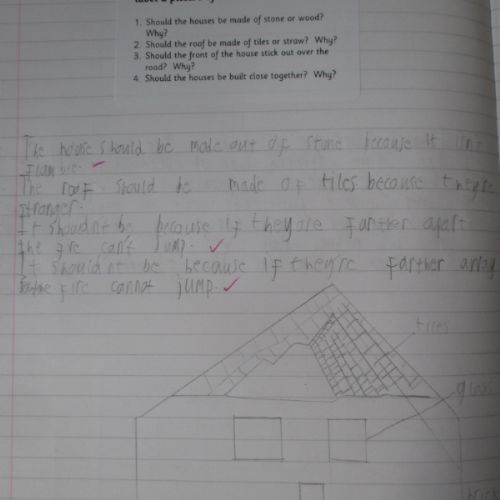 1. Should the houses be made of stone or wood?
Why?
2. Should the roof be made of tiles or straw? Why?
3. Should the front of the house stick out over the
road? Why?
4. Should the houses be built close together? Why?
The house should be made out of stone because it isnt
The roof should be made of tiles because theyre
stronger.
It shoudnt be because if they are further apart
the fire can't jump.
It shouldnt be because if they're farther
fire cannot jump.
tiles